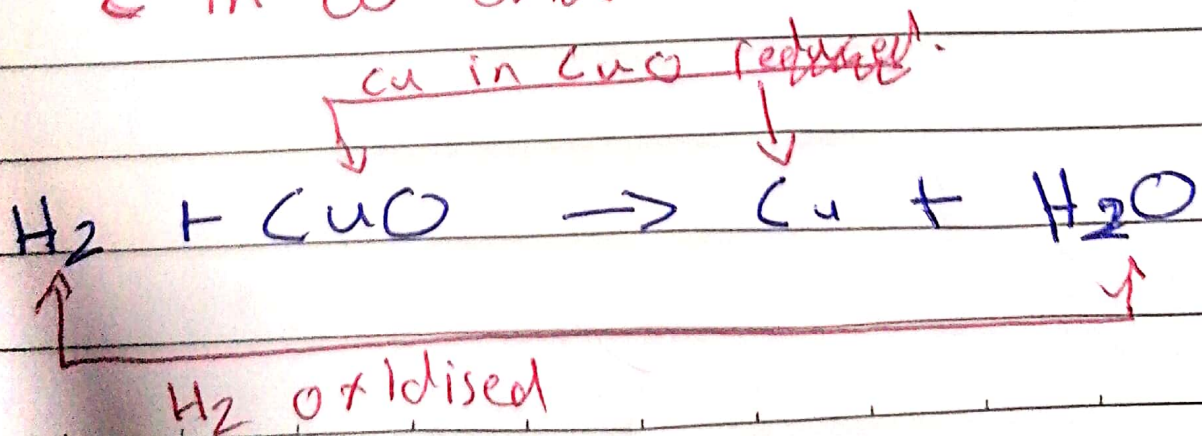 Cu in CuO reduced.
H2 + CuO -> Cu + H2O
H2 oxidised